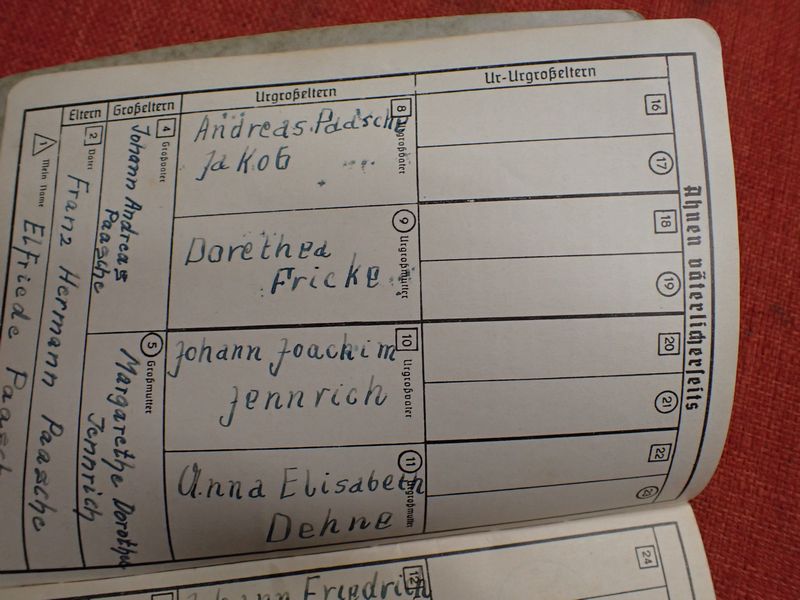 Ahnen väterlicherseits
Eltern
Großeltern
Urgroßeltern
Ur-Urgroßeltern
1
Mein Name
Elfriede
2
Vater
Franz Hermann Paasche
4
Großvater
Johann Andreas
Paasche
5
Großmutter
Margarethe Dorothea
Jennrich
8
Urgroßvater
Andreas Paasche
Jakob
9
Urgroßmutter
Dorethea
Fricke
10
Urgroßvater
Johann Joachim
Jennrich
11
Urgroßmutter
Anna Elisabeth
Dehne
16
17
18
19
20
21
22
23
12
Johann Friedrich
24